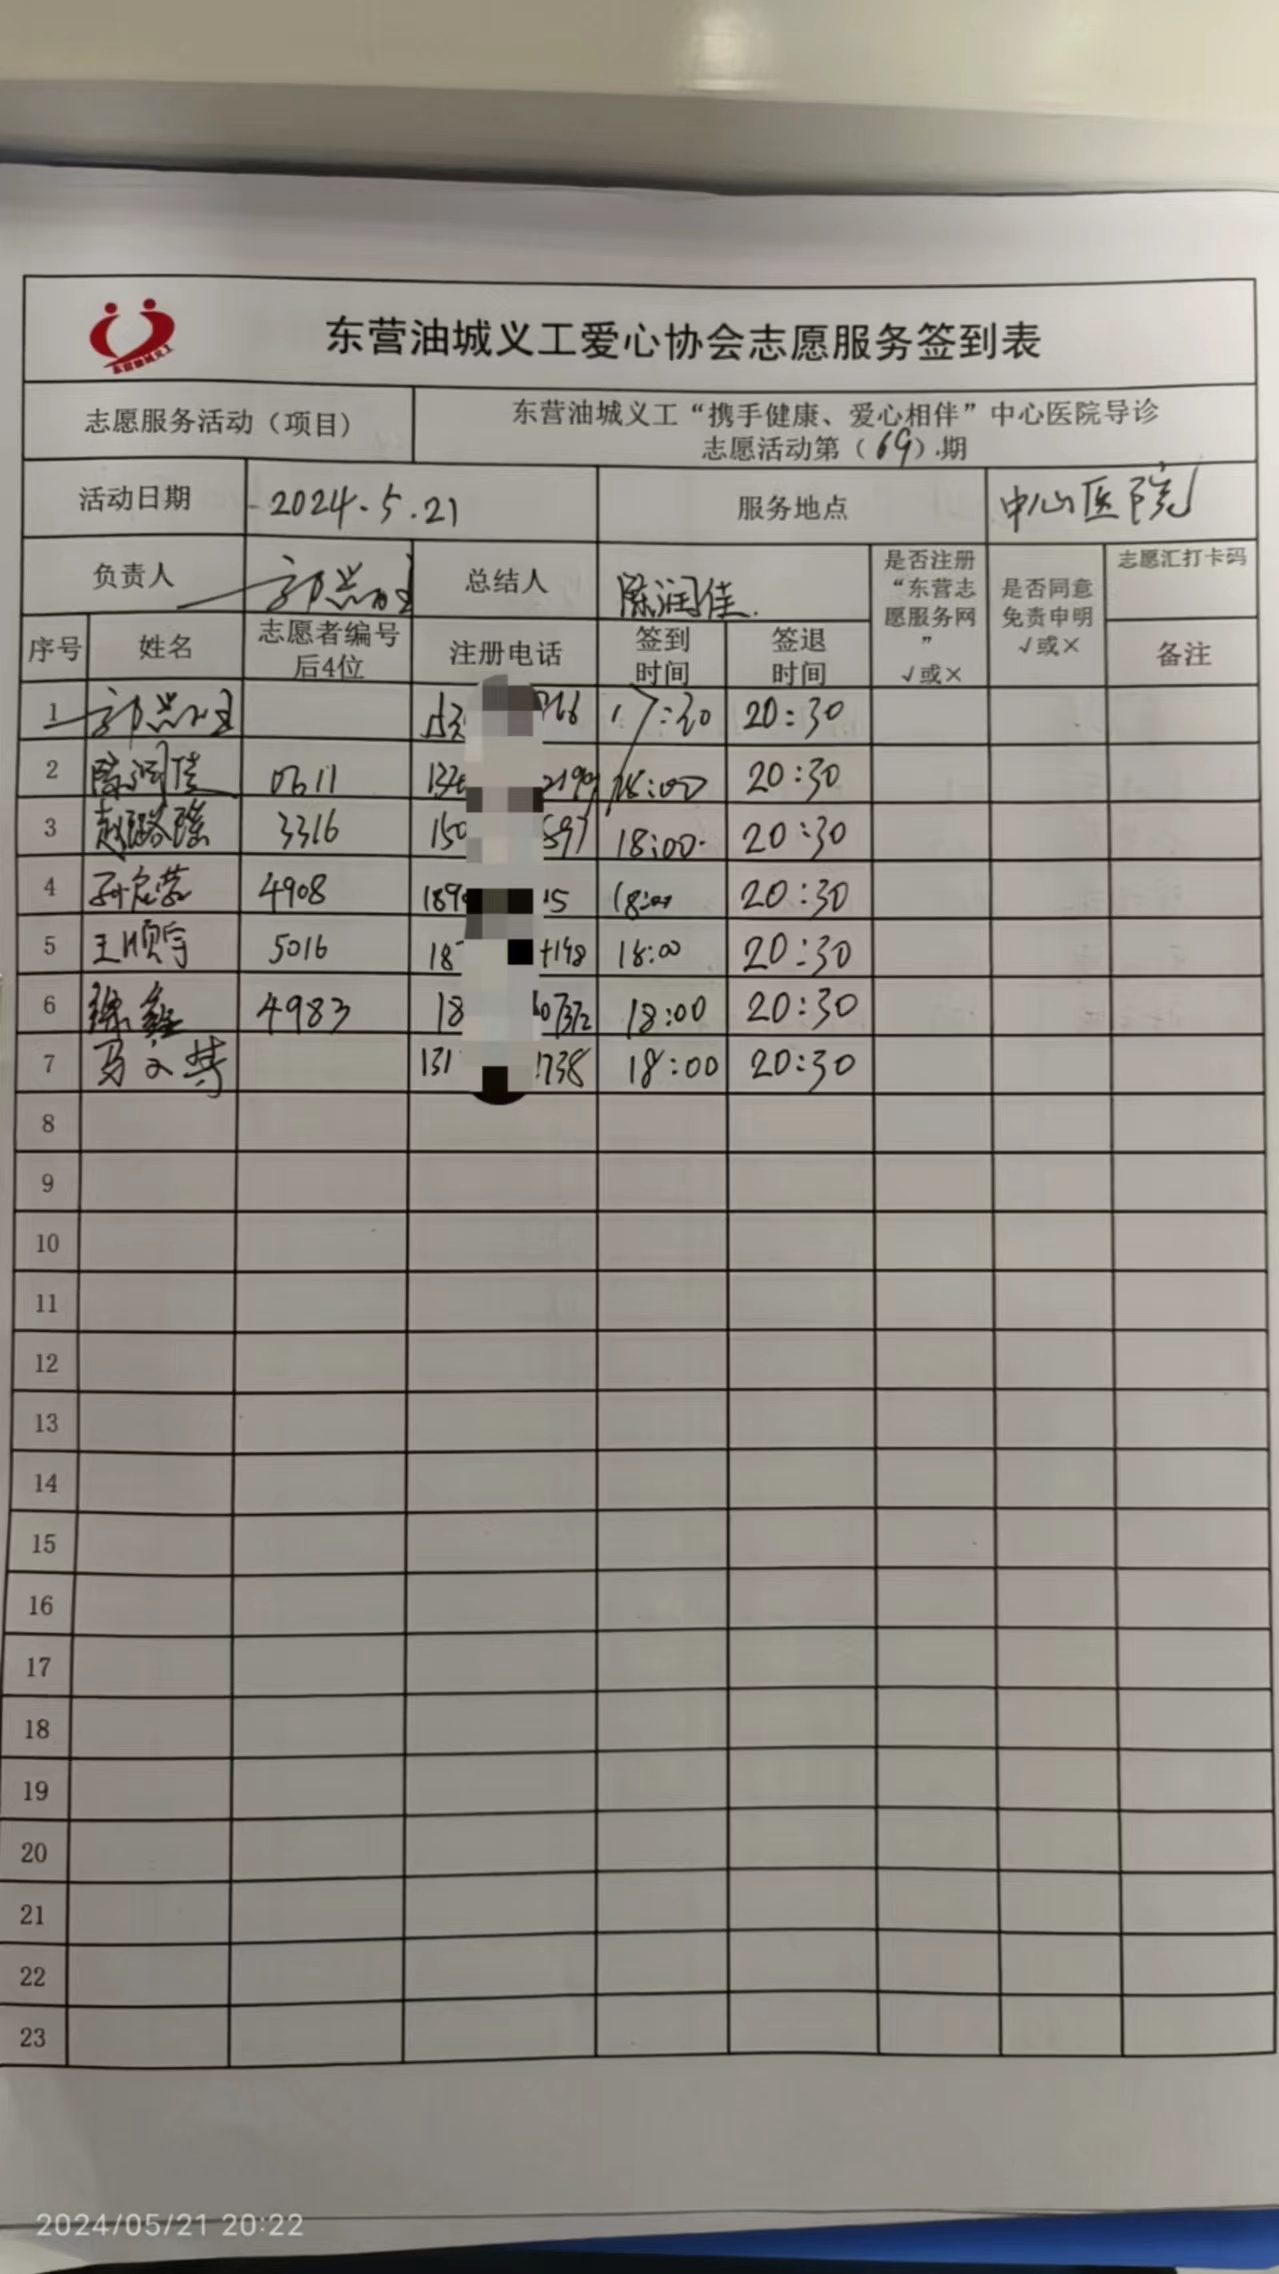 东营油城义工爱心协会志愿服务签到表
志愿服务活动（项目） 东营油城义工“携手健康、爱心相伴”中心医院导诊
志愿活动第（69）.期
活动日期 2024.5.21 服务地点 中心医院
负责人 总结人 陈润佳 是否注册“东营志愿服务网” √或× 是否同意免责申明 √或× 志愿汇打卡码
序号 姓名 志愿者编号后4位 注册电话 签到时间 签退时间 备注
1 17:30 20:30
2 陈润佳 0611 18:00 20:30
3 3316 150 597 18:00 20:30
4 4908 189 15 18:00 20:30
5 王顺宇 5016 18 18:00 20:30
6 徐鑫 4983 18 18:00 20:30
7 马文梦 131 1738 18:00 20:30
8
9
10
11
12
13
14
15
16
17
18
19
20
21
22
23
2024/05/21 20:22